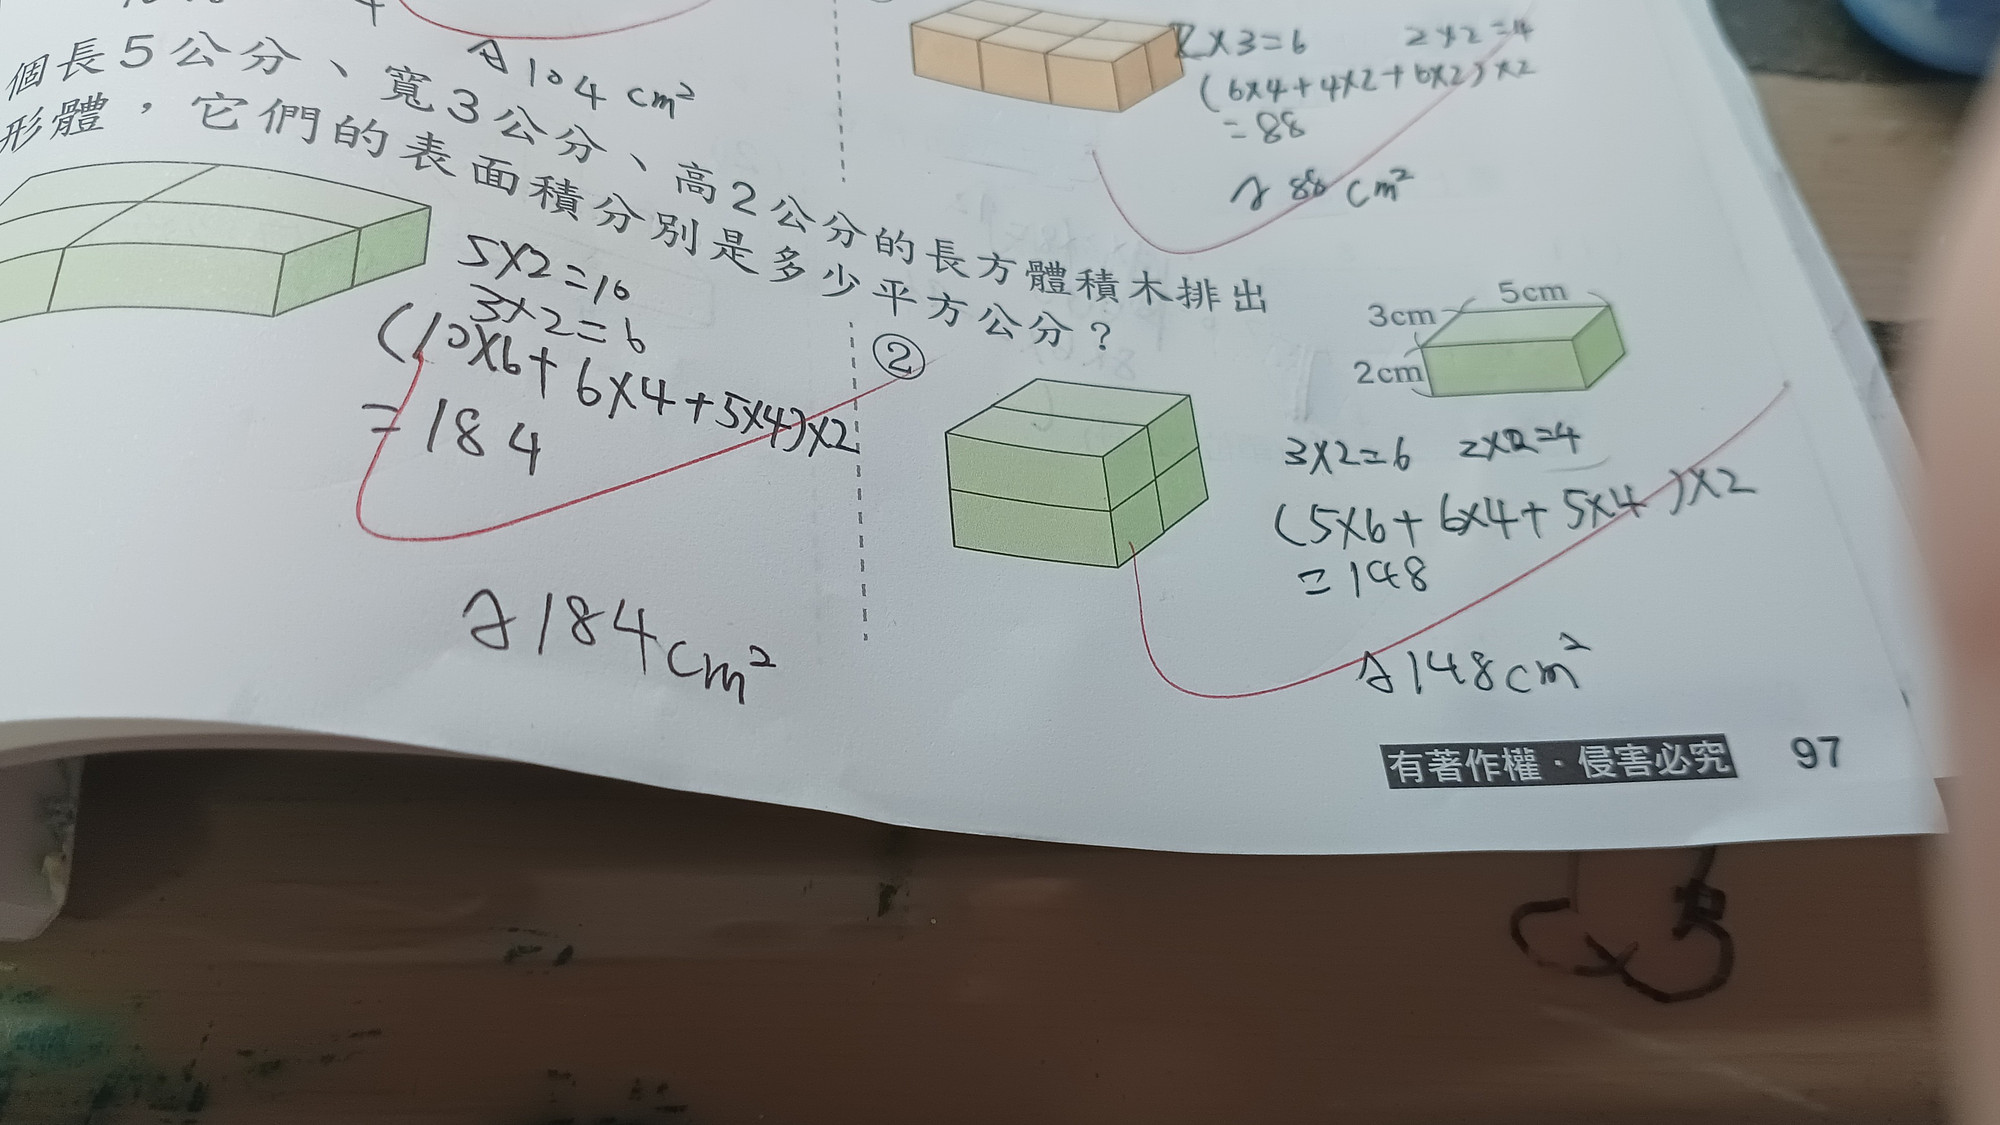 A 104 cm²
2×3=6 2×2=4
(6×4+4×2+6×2)×2
=88
A 88 cm²
個長5公分、寬3公分、高2公分的長方體積木排出
形體，它們的表面積分別是多少平方公分？
5×2=10
3×2=6
(10×6+6×4+5×4)×2
=184
A 184cm²
②
5cm
3cm
2cm
3×2=6 2×2=4
(5×6+6×4+5×4)×2
=148
A 148cm²
有著作權·侵害必究 97